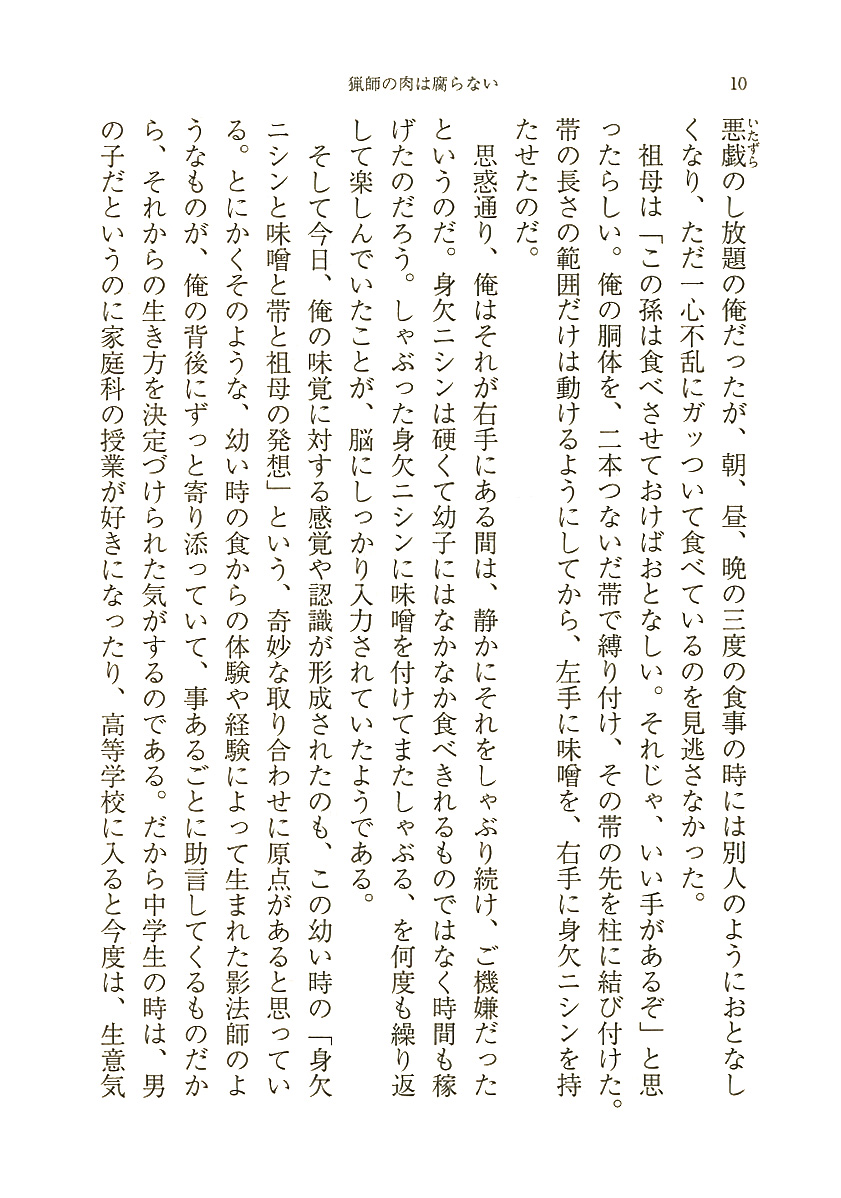 10
猟師の肉は腐らない
悪戯のし放題の俺だったが、朝、昼、晩の三度の食事の時には別人のようにおとなし
いたずら
くなり、ただ一心不乱にガッついて食べているのを見逃さなかった。
祖母は「この孫は食べさせておけばおとなしい。それじゃ、いい手があるぞ」と思
ったらしい。俺の胴体を、二本つないだ帯で縛り付け、その帯の先を柱に結び付けた。
帯の長さの範囲だけは動けるようにしてから、左手に味噌を、右手に身欠ニシンを持
たせたのだ。
思惑通り、俺はそれが右手にある間は、静かにそれをしゃぶり続け、ご機嫌だった
というのだ。身欠ニシンは硬くて幼子にはなかなか食べきれるものではなく時間も稼
げたのだろう。しゃぶった身欠ニシンに味噌を付けてまたしゃぶる、を何度も繰り返
して楽しんでいたことが、脳にしっかり入力されていたようである。
そして今日、俺の味覚に対する感覚や認識が形成されたのも、この幼い時の「身欠
ニシンと味噌と帯と祖母の発想」という、奇妙な取り合わせに原点があると思ってい
る。とにかくそのような、幼い時の食からの体験や経験によって生まれた影法師のよ
うなものが、俺の背後にずっと寄り添っていて、事あるごとに助言してくるものだか
ら、それからの生き方を決定づけられた気がするのである。だから中学生の時は、男
の子だというのに家庭科の授業が好きになったり、高等学校に入ると今度は、生意気